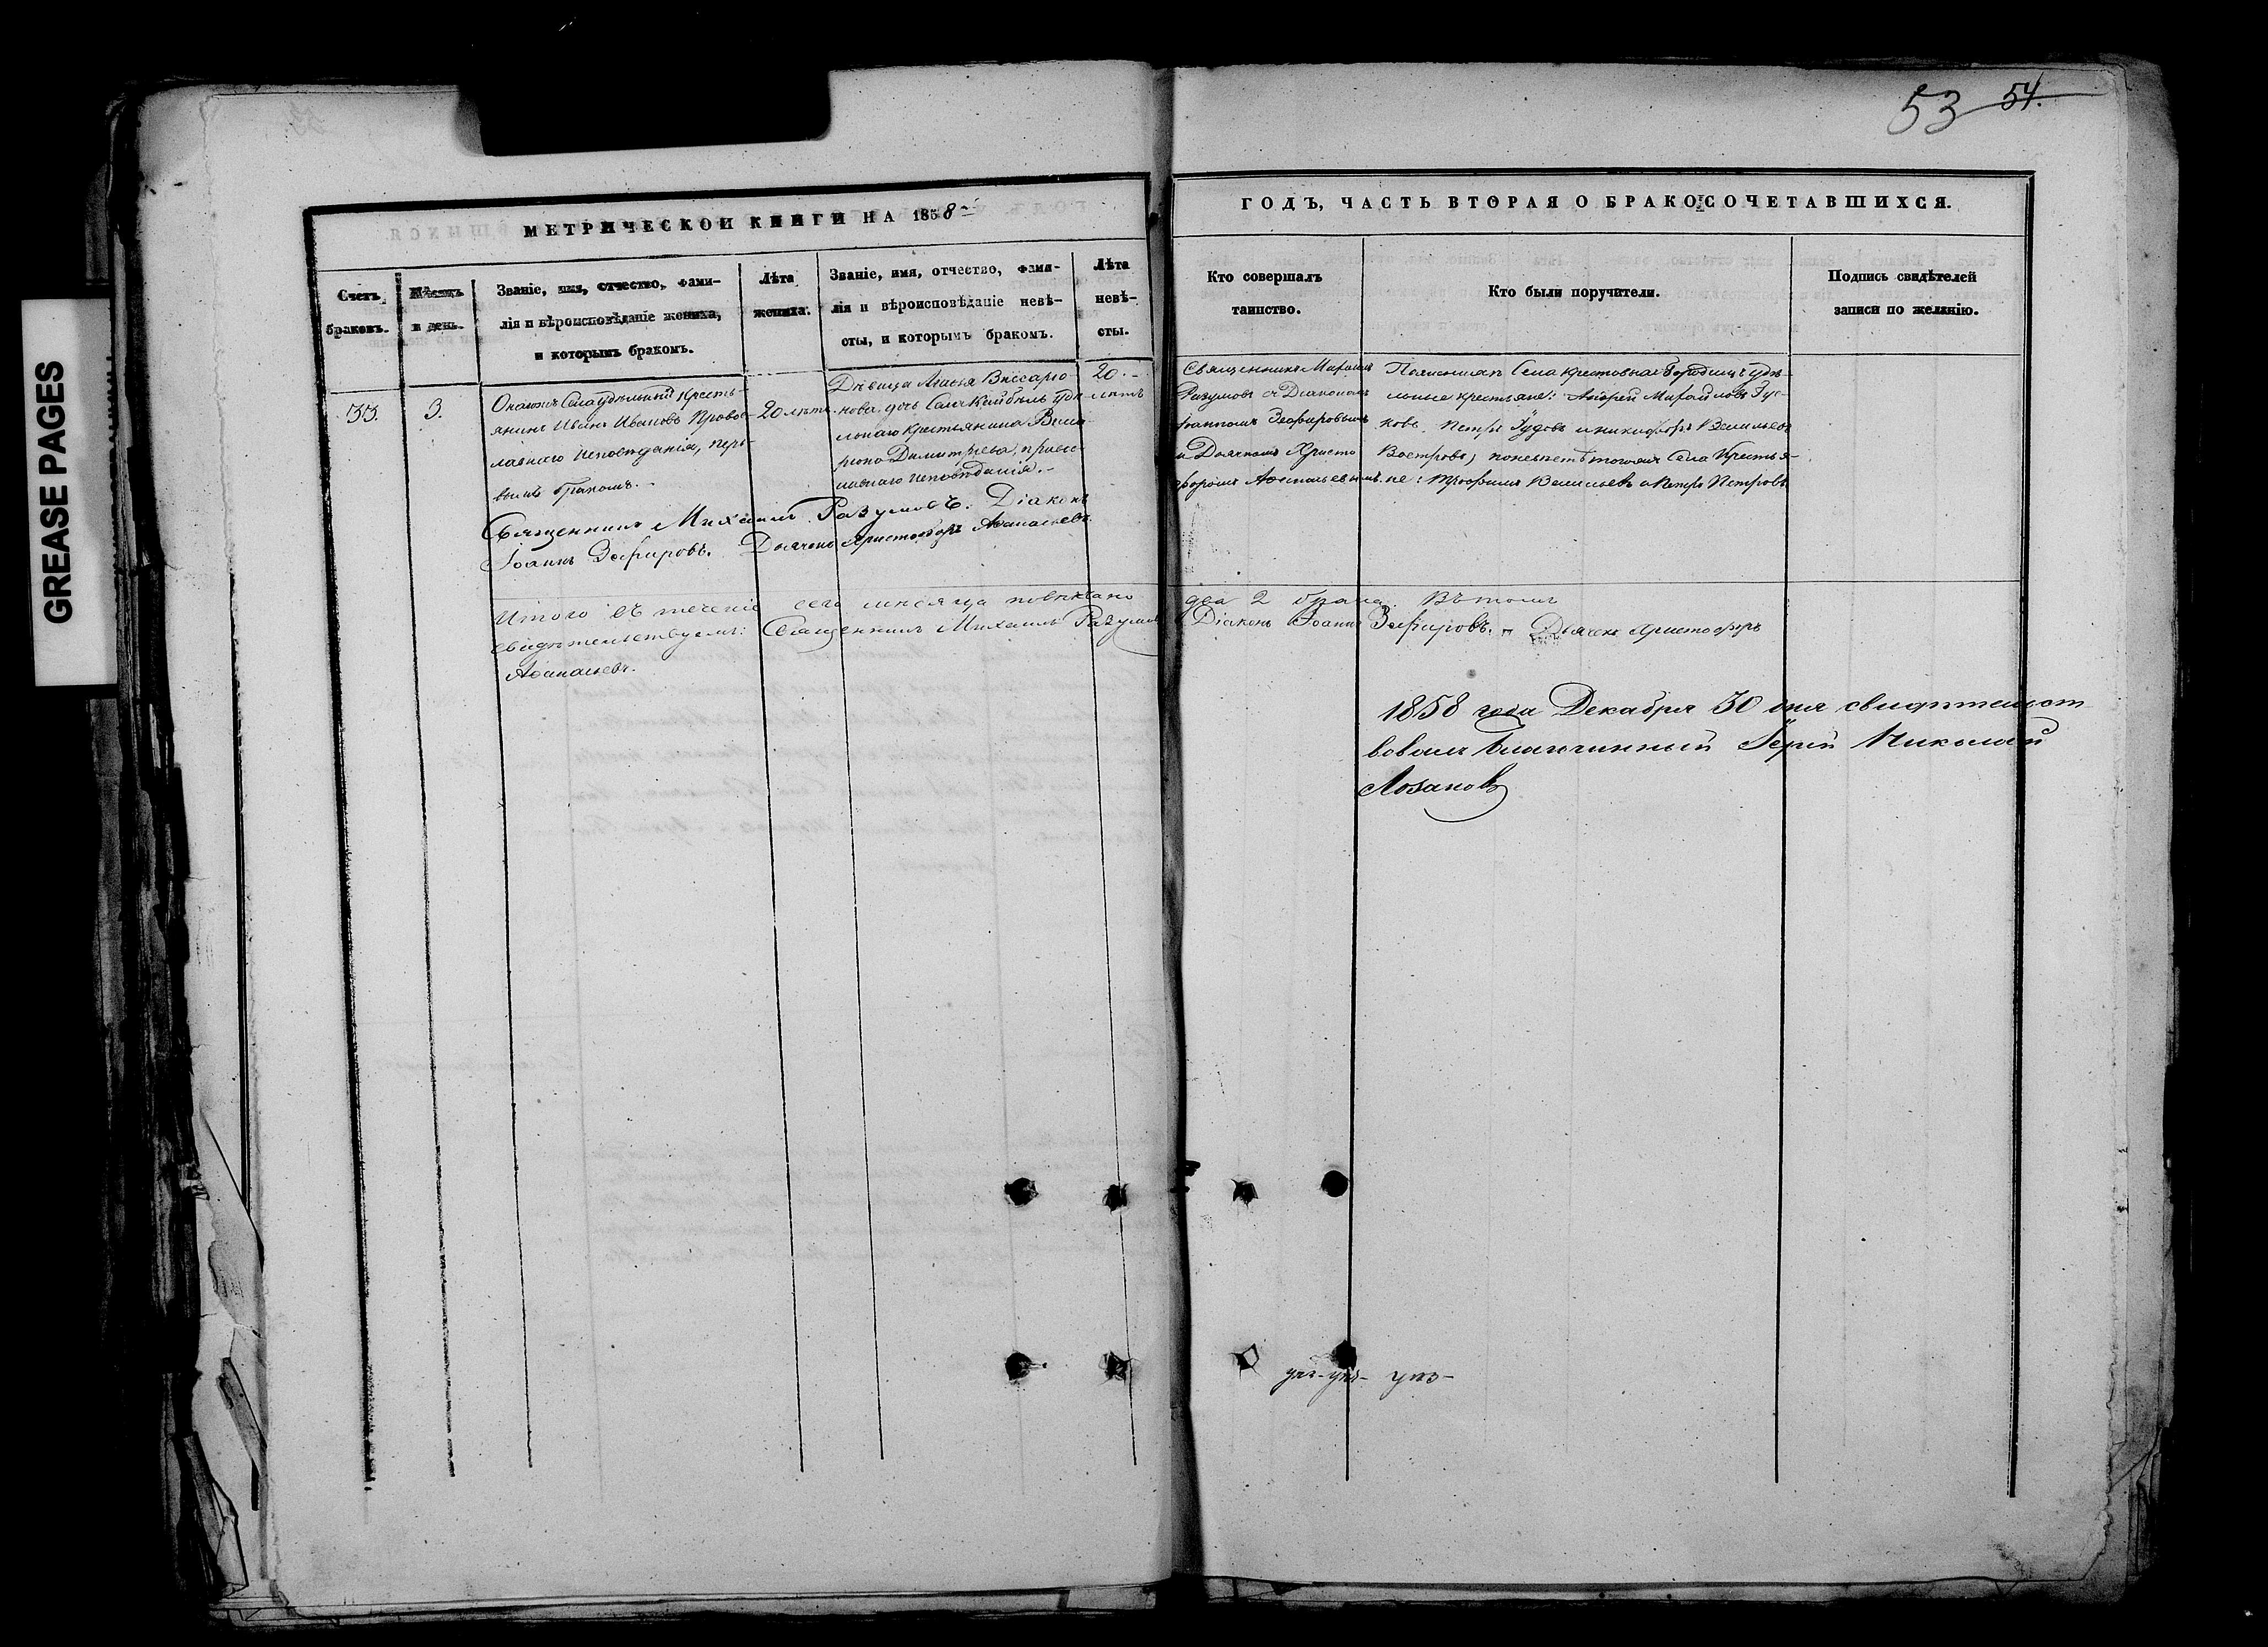 GREASE PAGES
53 54.
МЕТРИЧЕСКОЙ КНИГИ НА 1858
ГОДЪ, ЧАСТЬ ВТОРАЯ О БРАКОСОЧЕТАВШИХСЯ.
Счетъ
браковъ.
Мѣсяцъ
и день.
Званіе, имя, отчество, фами-
лія и вѣроисповѣданіе жениха,
и которымъ бракомъ.
Лѣта
жениха.
Званіе, имя, отчество, фами-
лія и вѣроисповѣданіе невѣ-
сты, и которымъ бракомъ.
Лѣта
невѣ-
сты.
Кто совершалъ
таинство.
Кто были поручители.
Подпись свидѣтелей
записи по желанію.
33.
3.
Села удѣльный кресть-
янинъ Иванъ Ивановъ Право-
славнаго исповѣданія, пер-
вымъ бракомъ.
20 лѣтъ
Дѣвица Виссаріо-
нова дочь Села удѣ-
льнаго крестьянина Висса-
ріона Димитріева, правос-
лавнаго исповѣданія.-
20.-
лѣтъ
Священникъ Михаилъ
Разумовъ съ Діакономъ
Іоанномъ Зефировымъ
и Дьячкомъ Христо
форомъ Аѳанасьевымъ.
По женихѣ Села Городищъ удѣ-
льные крестьяне: Андрей Михайловъ Гус-
ковъ, Петръ Гудовъ и Никифоръ Васильевъ
Востровъ, по невѣстѣ тогожъ Села Крестья-
не: Трофимъ Васильевъ и Петръ Петровъ
Священникъ Михаилъ Разумовъ. Діаконъ
Іоаннъ Зефировъ. Дьячекъ Христофоръ Аѳанасьевъ.
Итого въ теченіе сего мѣсяца повѣнчано два 2 брака. Въ томъ
свидѣтельствуемъ: Священникъ Михаилъ Разумовъ Діаконъ Іоаннъ Зефировъ. Дьячекъ Христофоръ
Аѳанасьевъ.
1858 года Декабря 30 дня свидѣтельст
вовалъ Благочинный Іерей Николай
Лозановъ